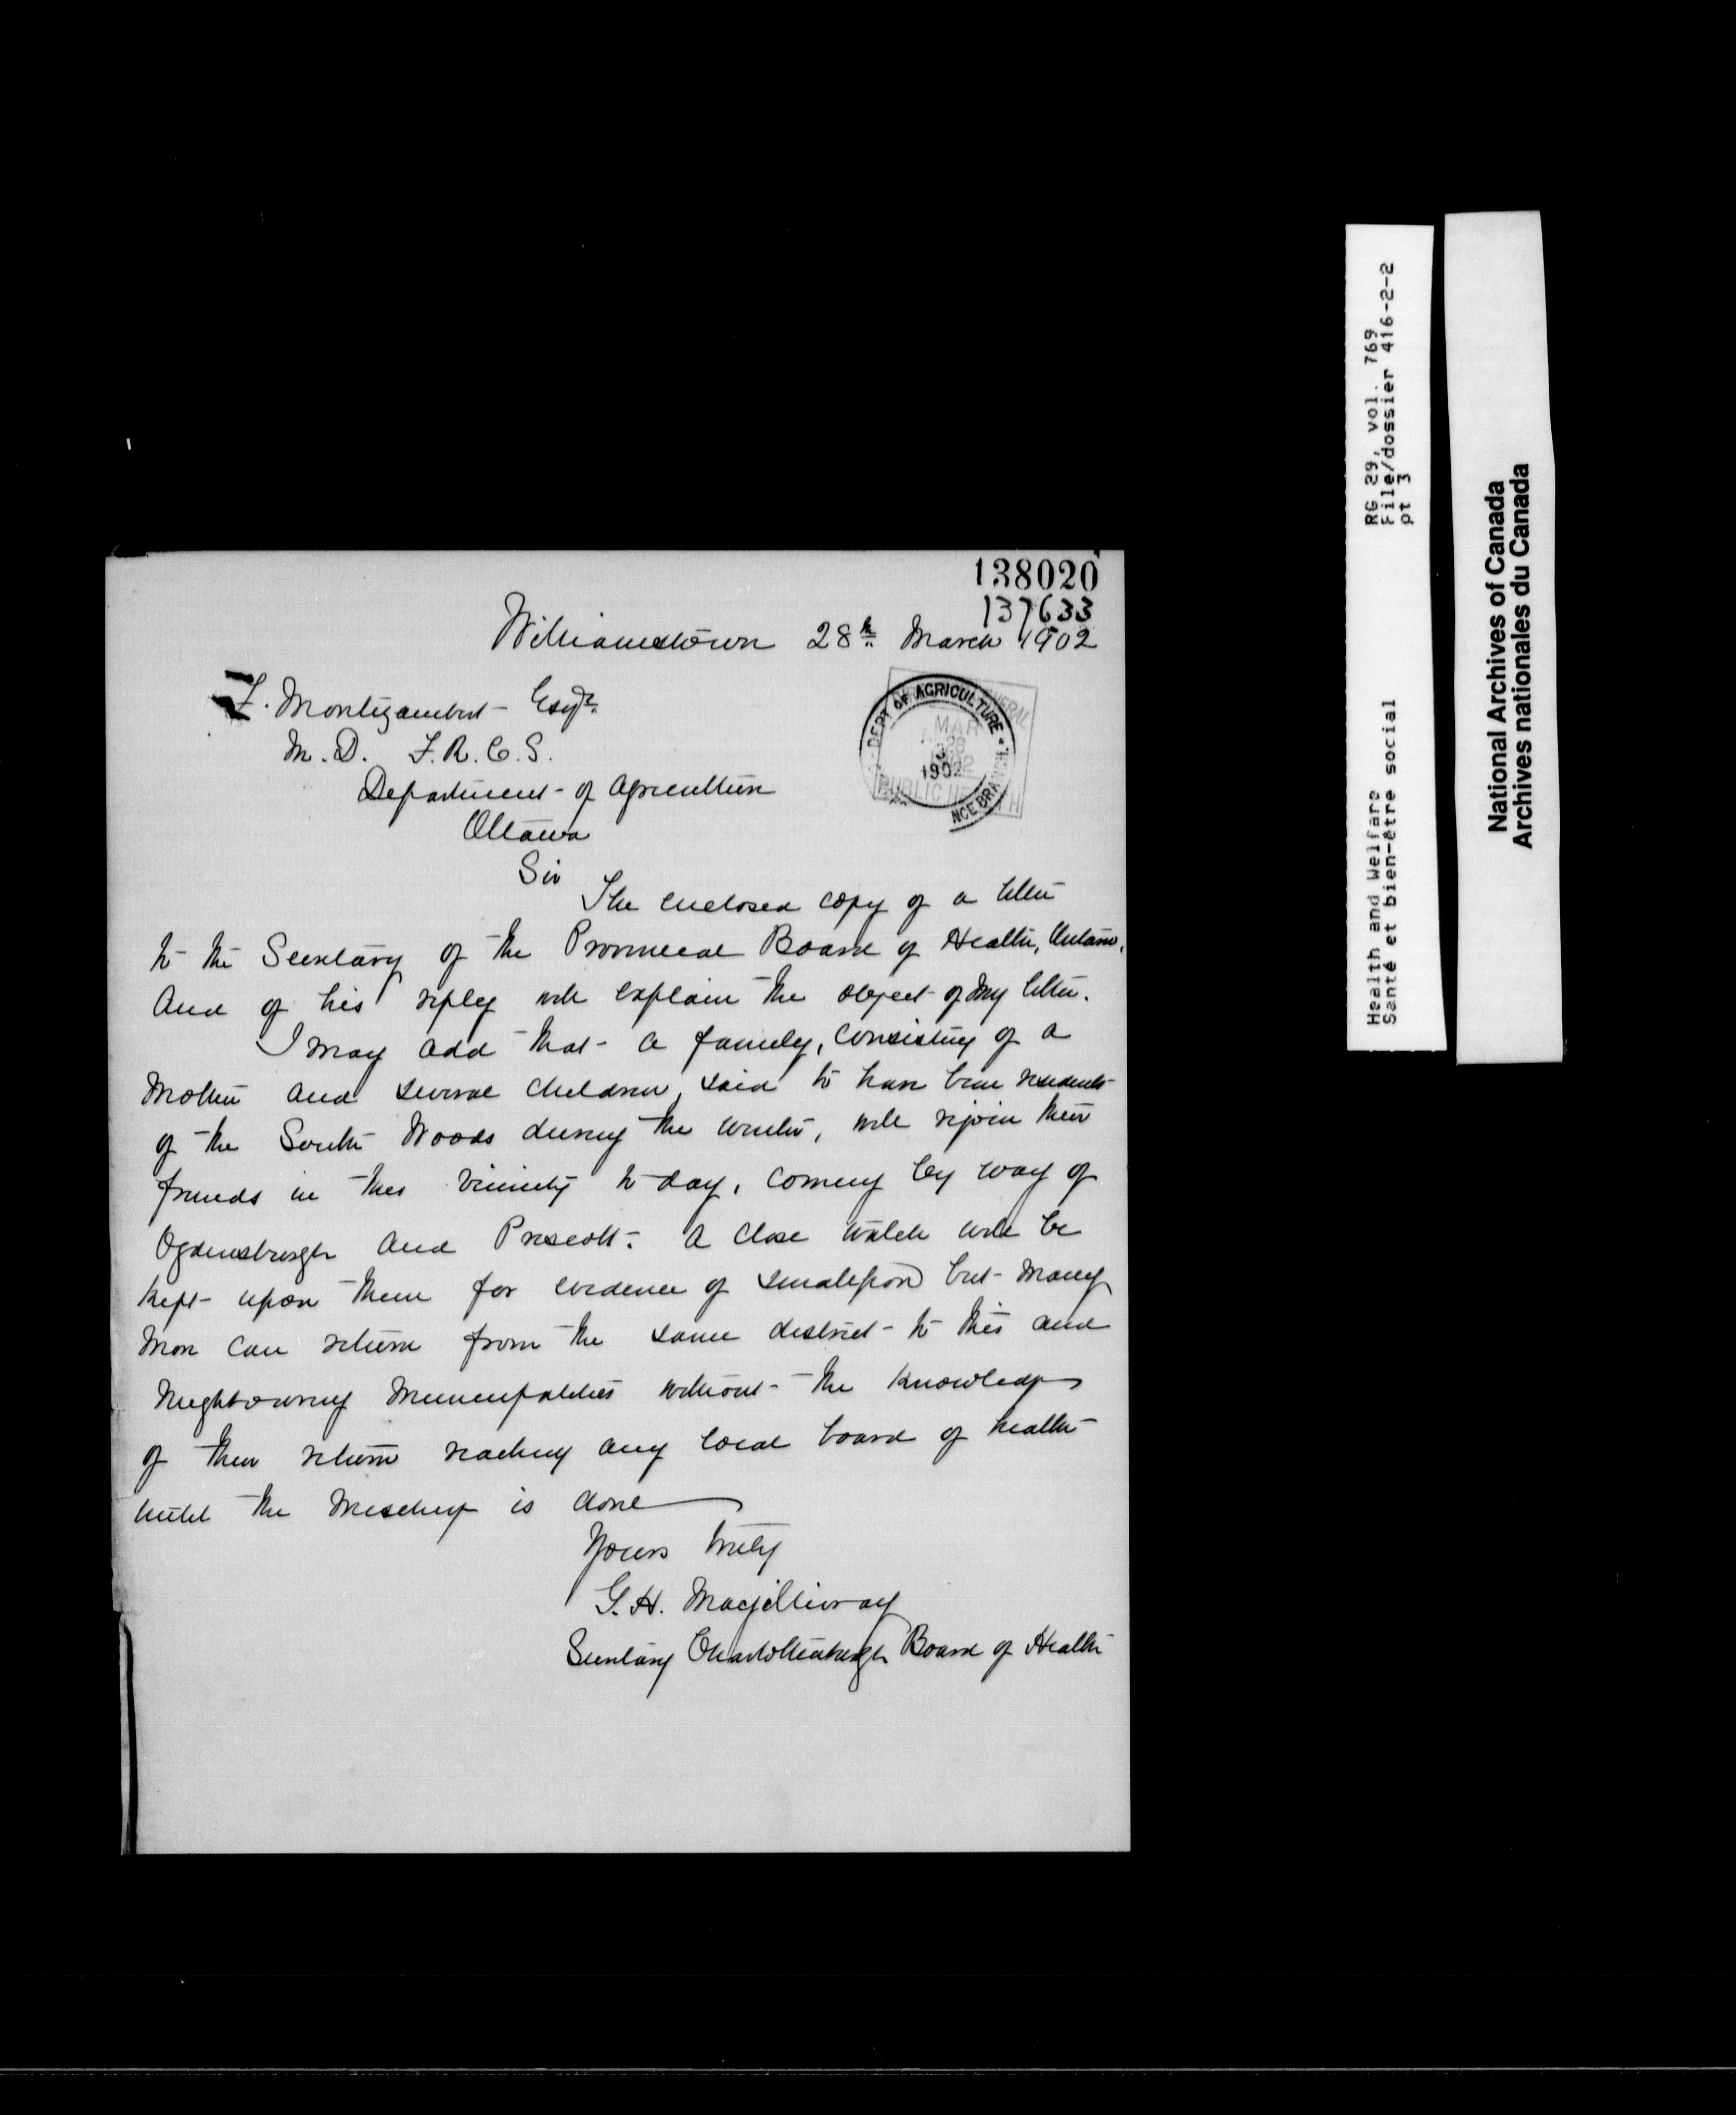 138020
137633
Williamstown 28th March 1902
F. Montizambert Esqr.
M.D. F.R.C.S.
Department of Agriculture
Ottawa
DEPT OF AGRICULTURE
MAR
28
1902
PUBLIC HEALTH
NCE BRANCH
Sir
The enclosed copy of a letter
to the Secretary of the Provincial Board of Health, Ontario,
and of his reply will explain the object of my letter.
I may add that a family, consisting of a
mother and several children, said to have been residents
of the South Woods during the winter, will rejoin their
friends in this vicinity to-day, coming by way of
Ogdensburgh and Prescott. A close watch will be
kept upon them for evidence of smallpox but many
more can return from the same district to this and
neighbouring municipalities without the knowledge
of their return reaching any local board of health
until the mischief is done
Yours truly
G. H. Macgillivray
Secretary Charlottenburgh Board of Health
RG 29, vol. 769
File/dossier 416-2-2
pt 3
Health and Welfare
Santé et bien-être social
National Archives of Canada
Archives nationales du Canada